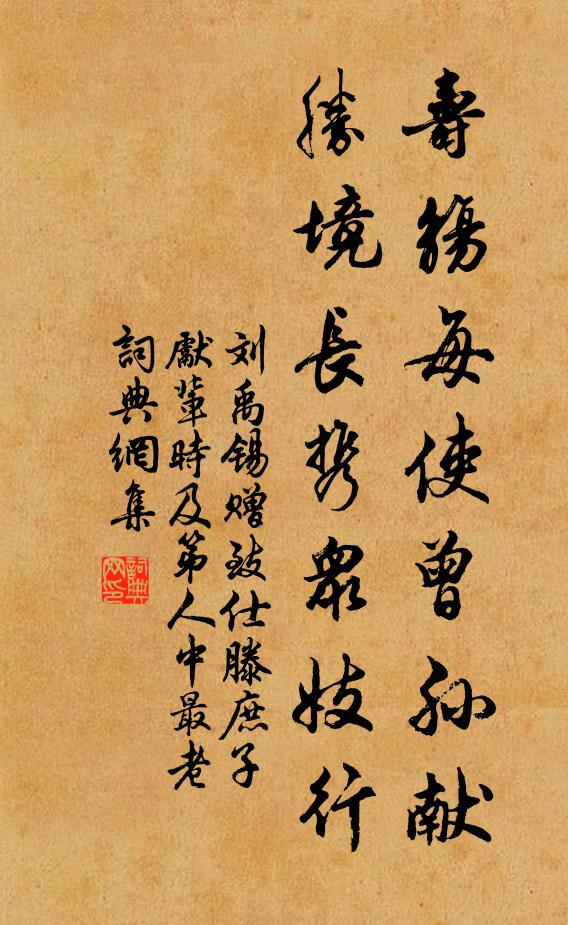 壽觴每使曾孙献
勝境長携眾妓行
刘禹锡赠致仕滕庶子
獻輩時及第人中最老
詞典網集
詞典网印